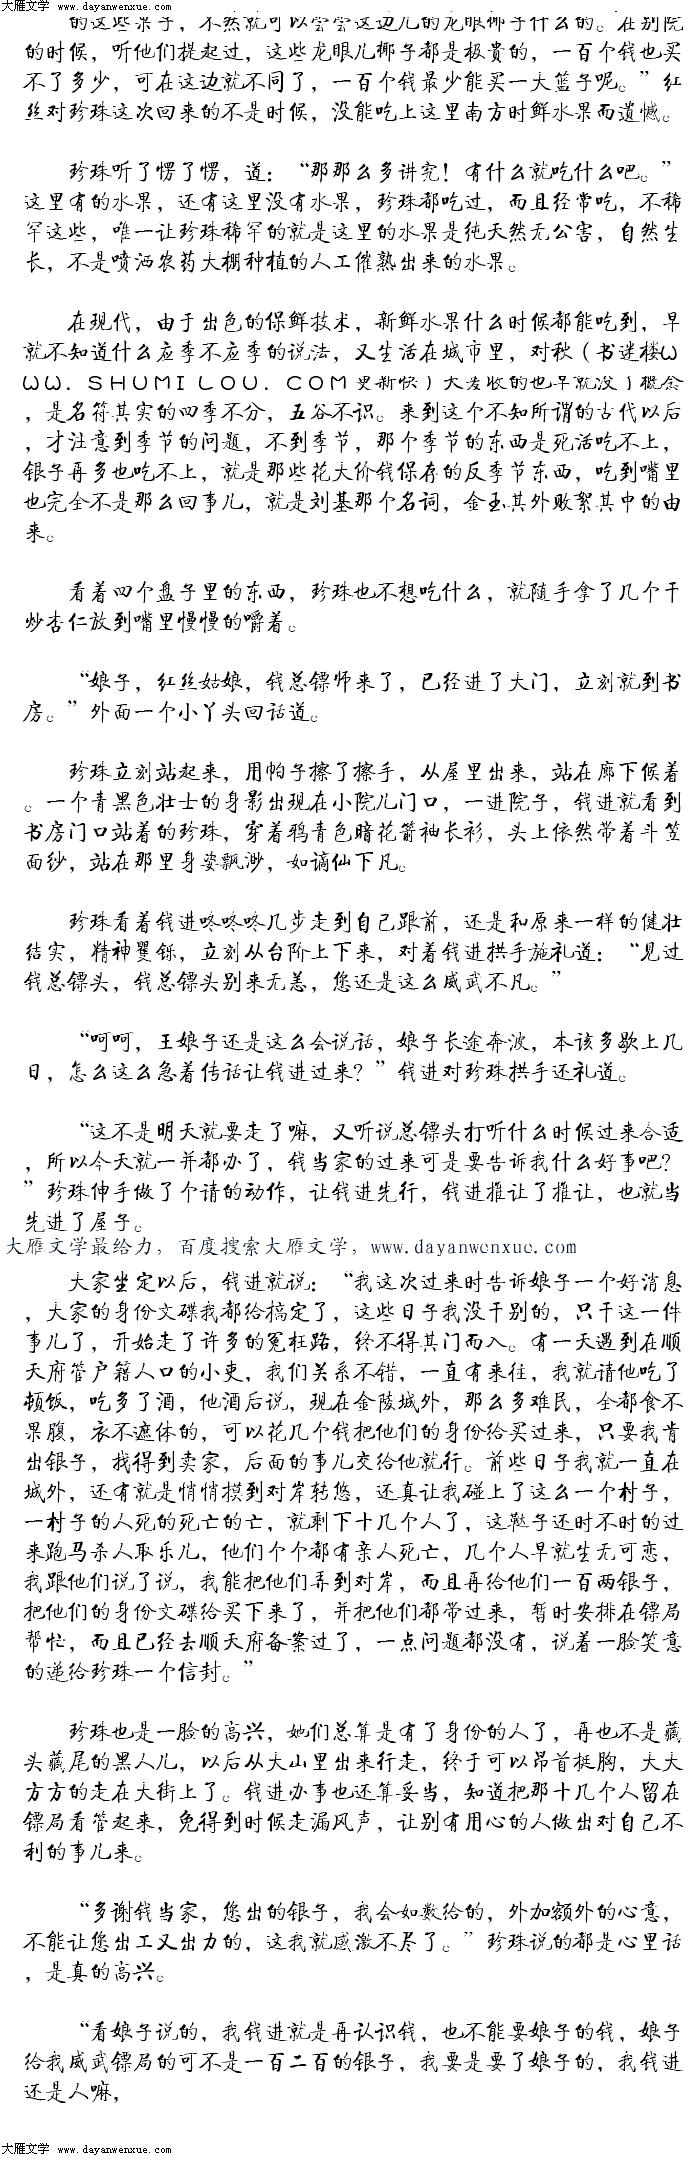 大雁文学 www.dayanwenxue.com
的这些果子，不然就可以尝尝这边儿的龙眼椰子什么的。在别院
的时候，听他们提起过，这些龙眼儿椰子都是极贵的，一百个钱也买
不了多少，可在这边就不同了，一百个钱最少能买一大篮子呢。”红
丝对珍珠这次回来的不是时候，没能吃上这里南方时鲜水果而遗憾。
珍珠听了愣了愣，道：“那那么多讲究！有什么就吃什么吧。”
这里有的水果，还有这里没有水果，珍珠都吃过，而且经常吃，不稀
罕这些，唯一让珍珠稀罕的就是这里的水果是纯天然无公害，自然生
长，不是喷洒农药大棚种植的人工催熟出来的水果。
在现代，由于出色的保鲜技术，新鲜水果什么时候都能吃到，早
就不知道什么应季不应季的说法，又生活在城市里，对秋（书迷楼W
WW．ＳＨＵＭＩＬＯＵ．ＣＯＭ更新快）天麦收的也早就没了概念
，是名符其实的四季不分，五谷不识。来到这个不知所谓的古代以后
，才注意到季节的问题，不到季节，那个季节的东西是死活吃不上，
银子再多也吃不上，就是那些花大价钱保存的反季节东西，吃到嘴里
也完全不是那么回事儿，就是刘基那个名词，金玉其外败絮其中的由
来。
看着四个盘子里的东西，珍珠也不想吃什么，就随手拿了几个干
炒杏仁放到嘴里慢慢的嚼着。
“娘子，红丝姑娘，钱总镖师来了，已经进了大门，立刻就到书
房。”外面一个小丫头回话道。
珍珠立刻站起来，用帕子擦了擦手，从屋里出来，站在廊下候着
。一个青黑色壮士的身影出现在小院儿门口，一进院子，钱进就看到
书房门口站着的珍珠，穿着鸦青色暗花箭袖长衫，头上依然带着斗笠
面纱，站在那里身姿飘渺，如谪仙下凡。
珍珠看着钱进咚咚咚几步走到自己跟前，还是和原来一样的健壮
结实，精神矍铄，立刻从台阶上下来，对着钱进拱手施礼道：“见过
钱总镖头，钱总镖头别来无恙，您还是这么威武不凡。”
“呵呵，王娘子还是这么会说话，娘子长途奔波，本该多歇上几
日，怎么这么急着传话让钱进过来？”钱进对珍珠拱手还礼道。
“这不是明天就要走了嘛，又听说总镖头打听什么时候过来合适
，所以今天就一并都办了，钱当家的过来可是要告诉我什么好事吧？
”珍珠伸手做了个请的动作，让钱进先行，钱进推让了推让，也就当
先进了屋子。
大雁文学最给力，百度搜索大雁文学，www.dayanwenxue.com
大家坐定以后，钱进就说：“我这次过来时告诉娘子一个好消息
，大家的身份文碟我都给搞定了，这些日子我没干别的，只干这一件
事儿了，开始走了许多的冤枉路，终不得其门而入。有一天遇到在顺
天府管户籍人口的小吏，我们关系不错，一直有来往，我就请他吃了
顿饭，吃多了酒，他酒后说，现在金陵城外，那么多难民，全都食不
果腹，衣不遮体的，可以花几个钱把他们的身份给买过来，只要我肯
出银子，找得到卖家，后面的事儿交给他就行。前些日子我就一直在
城外，还有就是悄悄摸到对岸转悠，还真让我碰上了这么一个村子，
一村子的人死的死亡的亡，就剩下十几个人了，这鞑子还时不时的过
来跑马杀人取乐儿，他们个个都有亲人死亡，几个人早就生无可恋，
我跟他们说了说，我能把他们弄到对岸，而且再给他们一百两银子，
把他们的身份文碟给买下来了，并把他们都带过来，暂时安排在镖局
帮忙，而且已经去顺天府备案过了，一点问题都没有，说着一脸笑意
的递给珍珠一个信封。”
珍珠也是一脸的高兴，她们总算是有了身份的人了，再也不是藏
头藏尾的黑人儿，以后从大山里出来行走，终于可以昂首挺胸，大大
方方的走在大街上了。钱进办事也还算妥当，知道把那十几个人留在
镖局看管起来，免得到时候走漏风声，让别有用心的人做出对自己不
利的事儿来。
“多谢钱当家，您出的银子，我会如数给的，外加额外的心意，
不能让您出工又出力的，这我就感激不尽了。”珍珠说的都是心里话
，是真的高兴。
“看娘子说的，我钱进就是再认识钱，也不能要娘子的钱，娘子
给我威武镖局的可不是一百二百的银子，我要是要了娘子的，我钱进
还是人嘛，
大雁文学 www.dayanwenxue.com